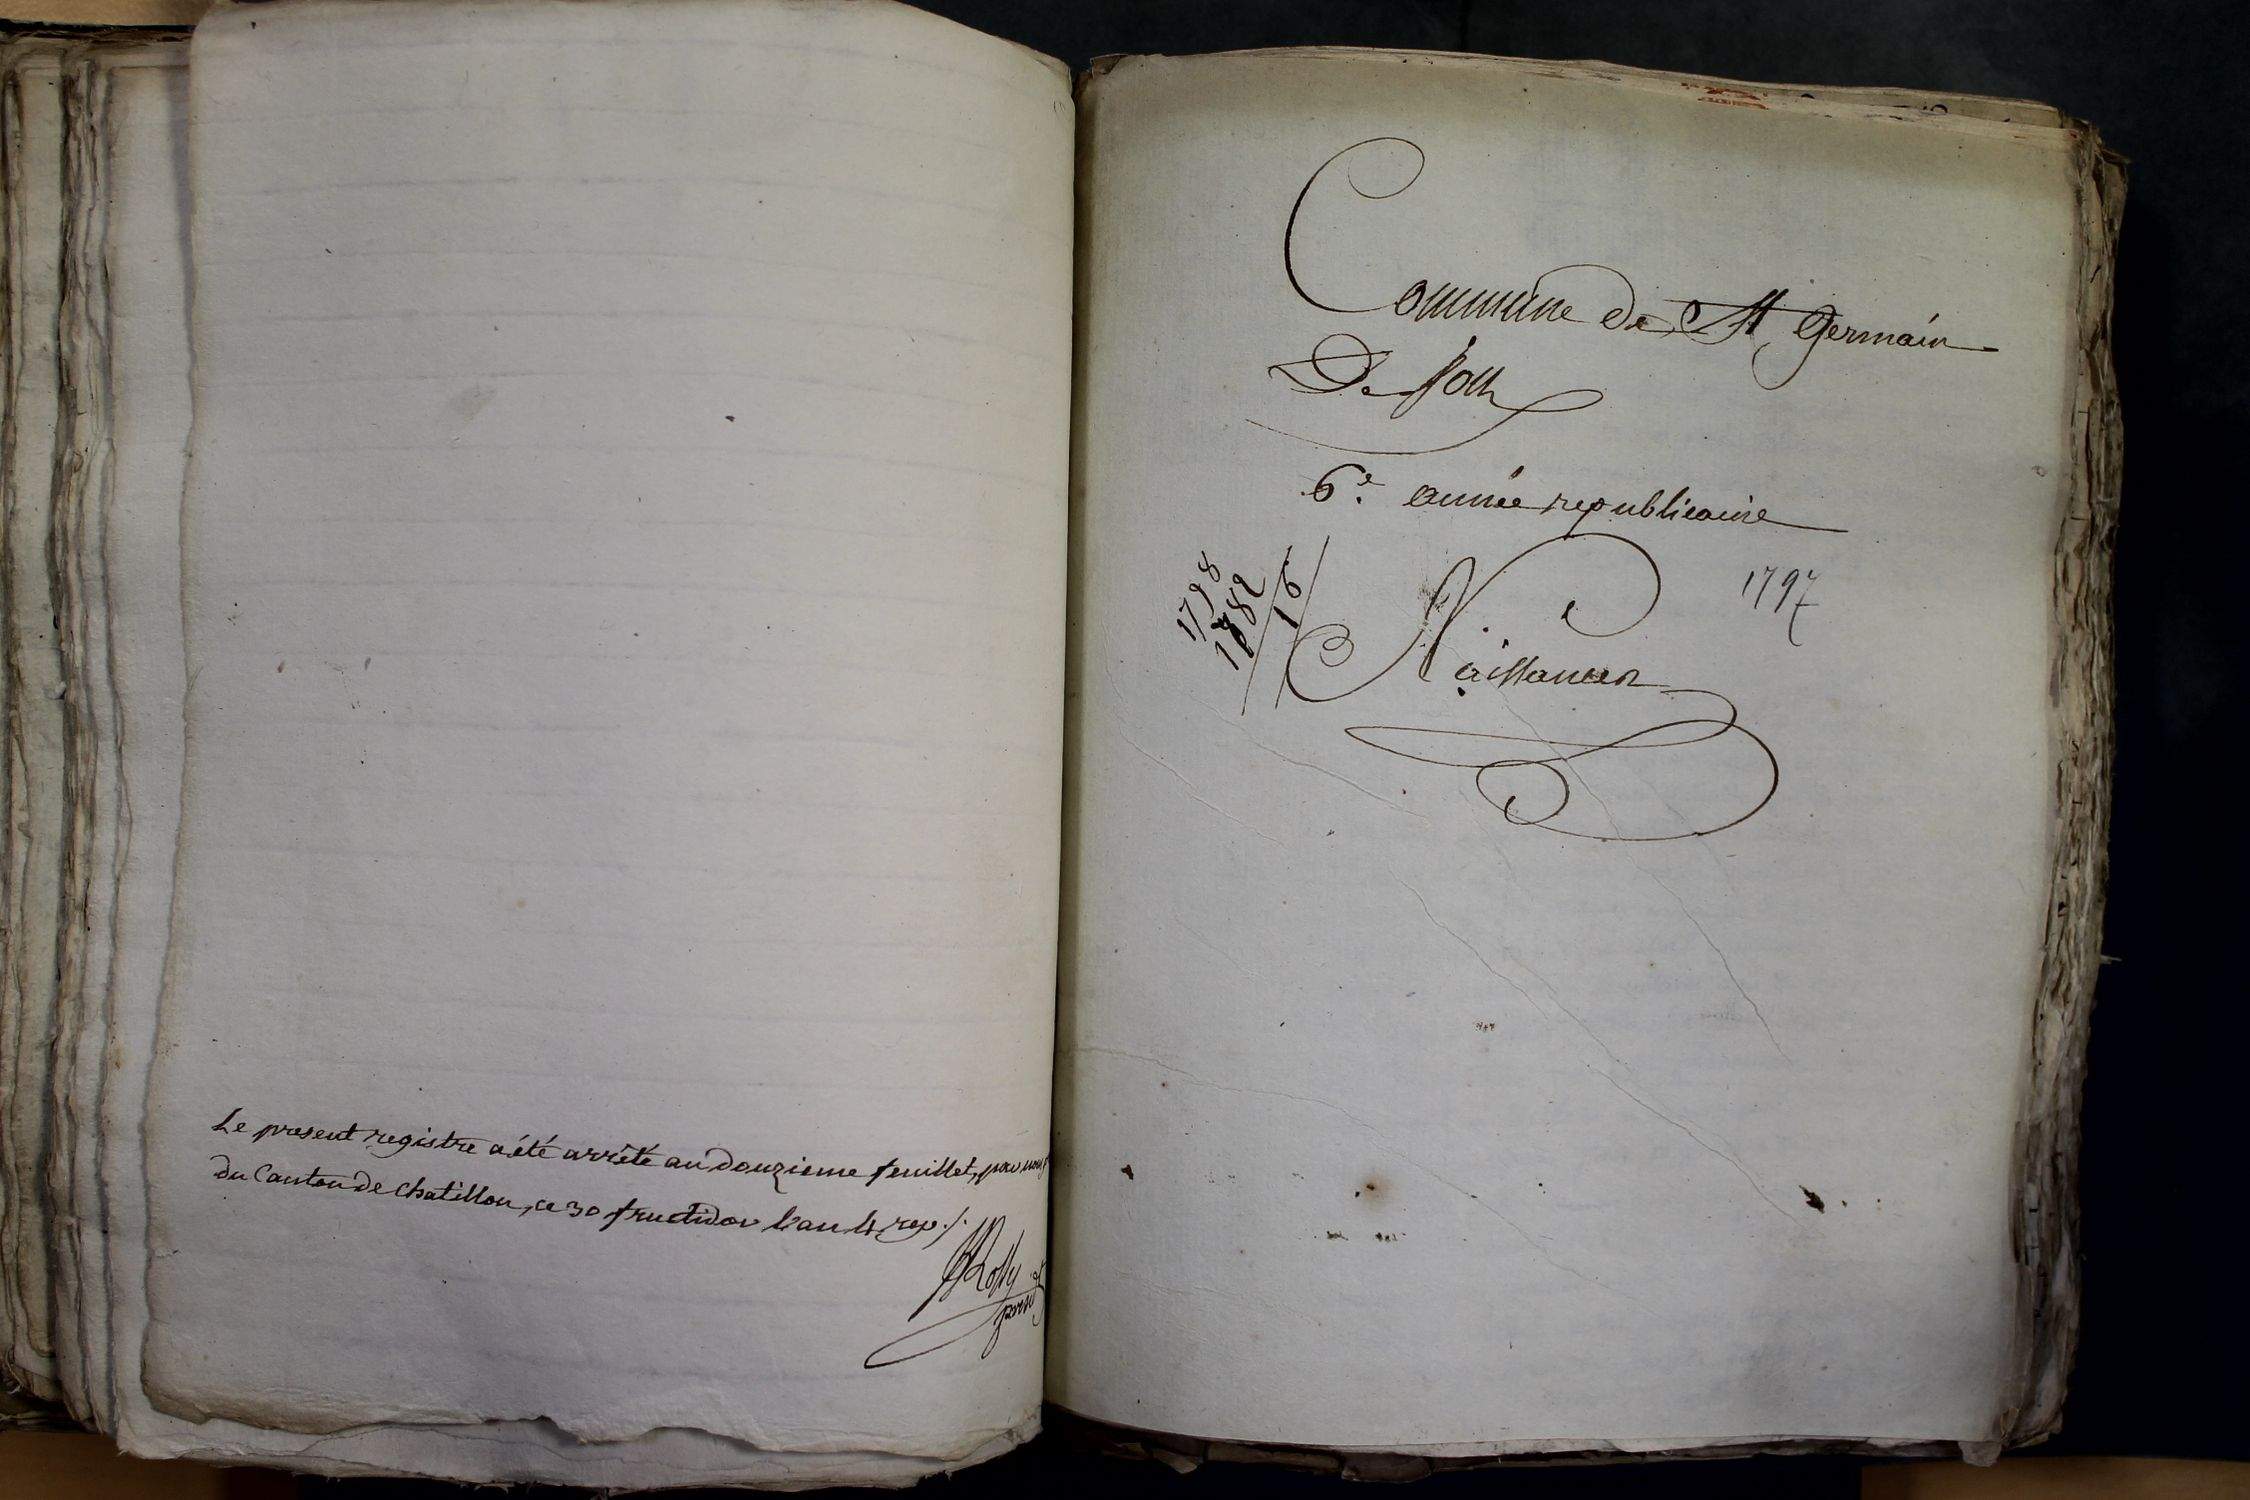 Le present registre a été arrêté au douzieme feuillet, par nous
du Canton de Chatillon, ce 30 fructidor l'an 4 rep./.
Commune de St Germain
De Joux
6e. année republicaine
1797
1798
1782
16
Naissances